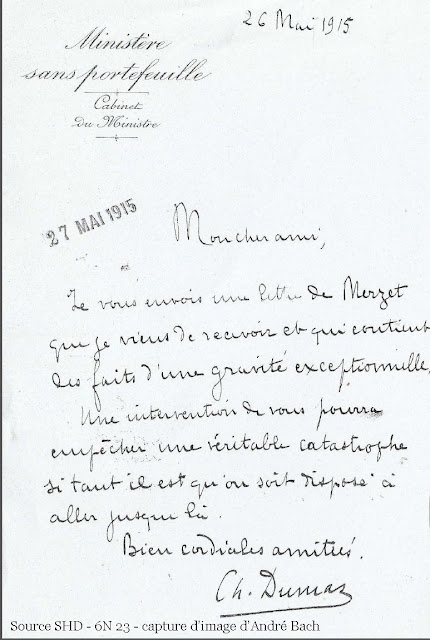 26 Mai 1915
Ministère
sans portefeuille
Cabinet
du Ministre
27 MAI 1915
Mon cher ami,
Je vous envois une lettre de Merzet
que je viens de recevoir et qui contient
des faits d'une gravité exceptionnelle,
Une intervention de vous pourra
empêcher une véritable catastrophe
si tant il est qu'on soit disposé à
aller jusque là.
Bien cordiales amitiés.
Ch. Dumas
Source SHD - 6N 23 - capture d'image d'André Bach